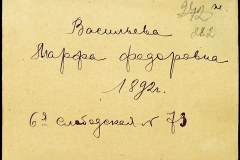 242
282
Васильева
Марфа Федоровна
1892г.
6я слободская № 73